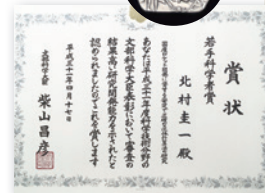 賞状
若手科学者賞
北村圭一殿
あなたは平成三十一年度科学技術分野の
文部科学大臣表彰において審査の
結果高い研究開発能力を示されたと
認められましたのでこれを賞します
平成三十一年四月十七日
文部科学大臣 柴山昌彦